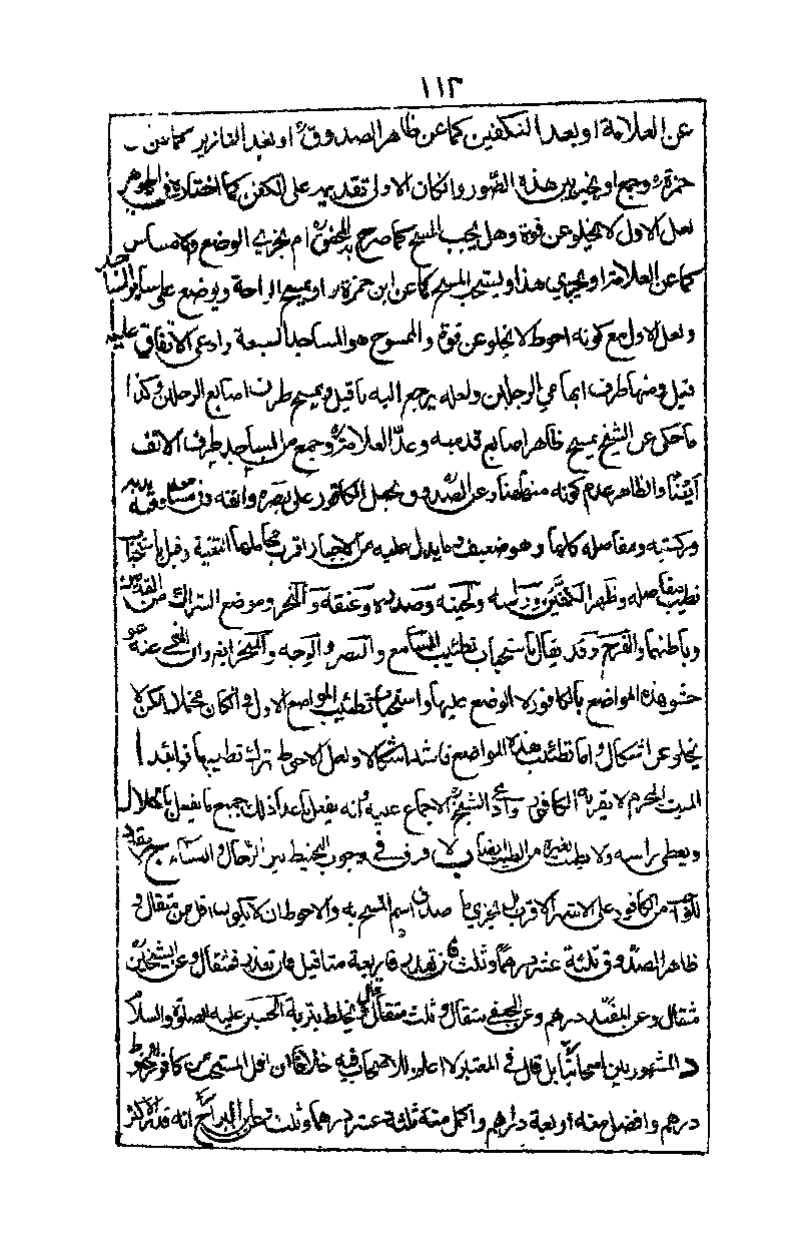 ١١٣
عن العلامة او بعد التكفين كما عن ظاهر الصدوق ره او بعد التازير كما عن
حمزة ره وجمع او يخير بين هذه الصور وان كان الاولى تقديمه على الكفن كما اختاره في الجواهر
لعل الاول لا يخلو عن قوة وهل يجب المسح كما صرح به ام يجزي الوضع
كما عن العلامة او يجزي هذا ويستحب المسح كما عن ابن حمزة ره او يمسح الراحة ويوضع على ساير المساجد
ولعل الاول مع كونه احوط لا يخلو عن قوة والممسوح هو المساجد السبعة وادعى الاتفاق عليه
قيل ومنها طرف ابهامي الرجلين ولعله يرجع اليه ما قيل ويمسح طرف اصابع الرجلين وكذا
ما حكى عن الشيخ يمسح ظاهر اصابع قدميه وعدّ العلامة ره وجمع من المساجد طرف الانف
ايضا والظاهر عدم كونه منها وعن الصدوق يجعل الكافور على بصره وانفه في مسامعه وفيه يديه
وركبتيه ومفاصله كلها وهو ضعيف وما يدل عليه من الاخبار اقرب محاملها التقية وقيل باستحباب
تطييب مفاصله وظهر الكفين ورأسه ولحيته وصدره وعنقه والمنخر وموضع الشراك من القدمين
وباطنهما والفرج وقد يقال باستحباب تطييب المسامع والبصر والوجه والمنخر ايضا وان المنهي عنه هو
حشو هذه المواضع بالكافور لا الوضع عليها واستحباب تطييب المواضع الاول وان كان محتملا لكن لا
يخلو عن اشكال واما تطييب هذه المواضع فاشد اشكالا ولعل الاحوط ترك تطييبها
الميت المحرم لا يقربه الكافور وعن الشيخ ره الاجماع عليه وانه يفعل ما عدا ذلك جميع ما يفعل بالحلال
ويغطى راسه ولا بغيره من الطيب ايضا ولا فرق في وجوب التحنيط بين الرجال والنساء
الواجب من الكافور وعلى الاشهر الاقرب يجزي ما صدق اسم المسح به والاحوط ان لا يكون اقل من مثقال و
ظاهر الصدوق ثلثة عشر درهما وثلث فان تعذر فاربعة مثاقيل فان تعذر فمثقال وعن الشيخين
مثقال وعن المفيد درهم وعن الجعفي مثقال وثلث مثقال قال يخلط بتربة الحسين عليه الصلوة والسلام
د المشهور بين اصحابنا بل قال في المعتبر لا اعلم للاصحاب فيه خلافا ان اقل المستحب من كافور الحنوط
درهم وافضل منه اربعة دراهم واكمل منه ثلثة عشر درهما وثلث وعن ابن البراج انه قدر الاكثر